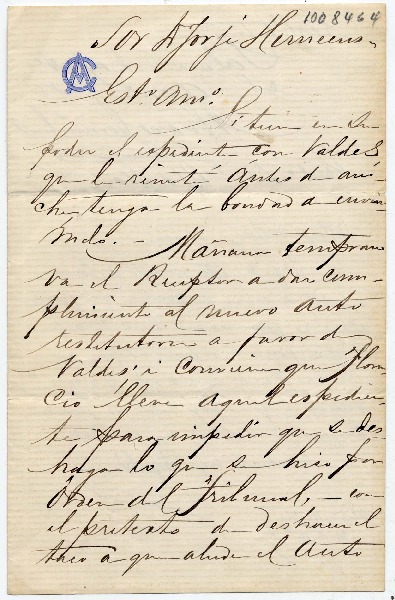 1008464
Sor D Jorje Hermens
Esto Amo.
Si tiene en su
poder el espediente con Valdés
que le remití ántes d ano
che tenga la bondad d envia
rmelo. — Mañana temprano
va el Receptor a dar cum
plimiento al nuevo auto
restitutorio a favor de
Valdés i conviene que Hora
cio lleve aquel espedien
te para impedir que se des
haga lo qe se hizo por
órden del Tribunal, — con
el pretexto de deshacer el
taco a que alude el Auto